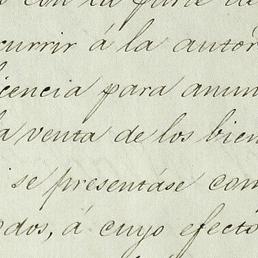 con la parte de
currir á la autor
icencia para anun
la venta de los bien
se presentáse com
odos, á cuyo efecto